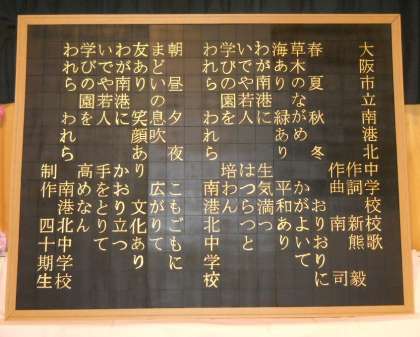 大阪市立南港北中学校校歌
作詞 新熊 毅
作曲 南 司
春 夏 秋 冬 おりおりに
草木のながめ かがよいて
海あり 緑あり 平和あり
わが南港に 生気満つ
いでや若人 はつらつと
学びの園を 培わん
われら われら 南港北中学校
朝 昼 夕 夜 こもごもに
まどいの息吹 広がりて
友あり 笑顔あり 文化あり
わが南港に かおり立つ
いでや若人 手をとりて
学びの園を 高めなん
われら われら 南港北中学校
制作 四十期生